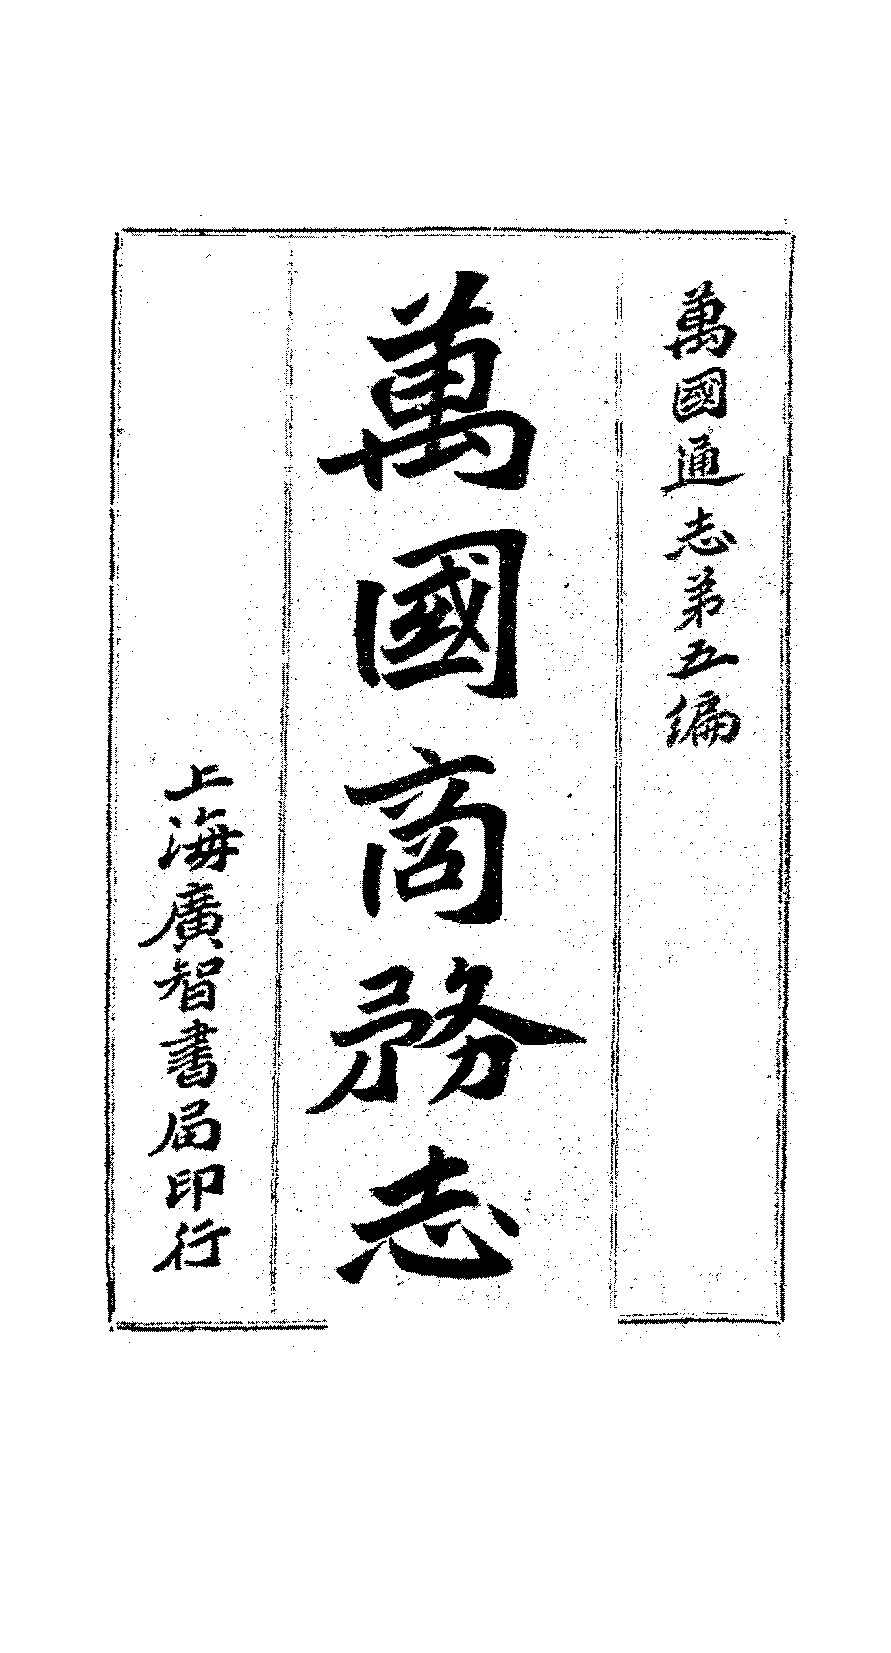 萬國通志第五編
萬國商務志
上海廣智書局印行